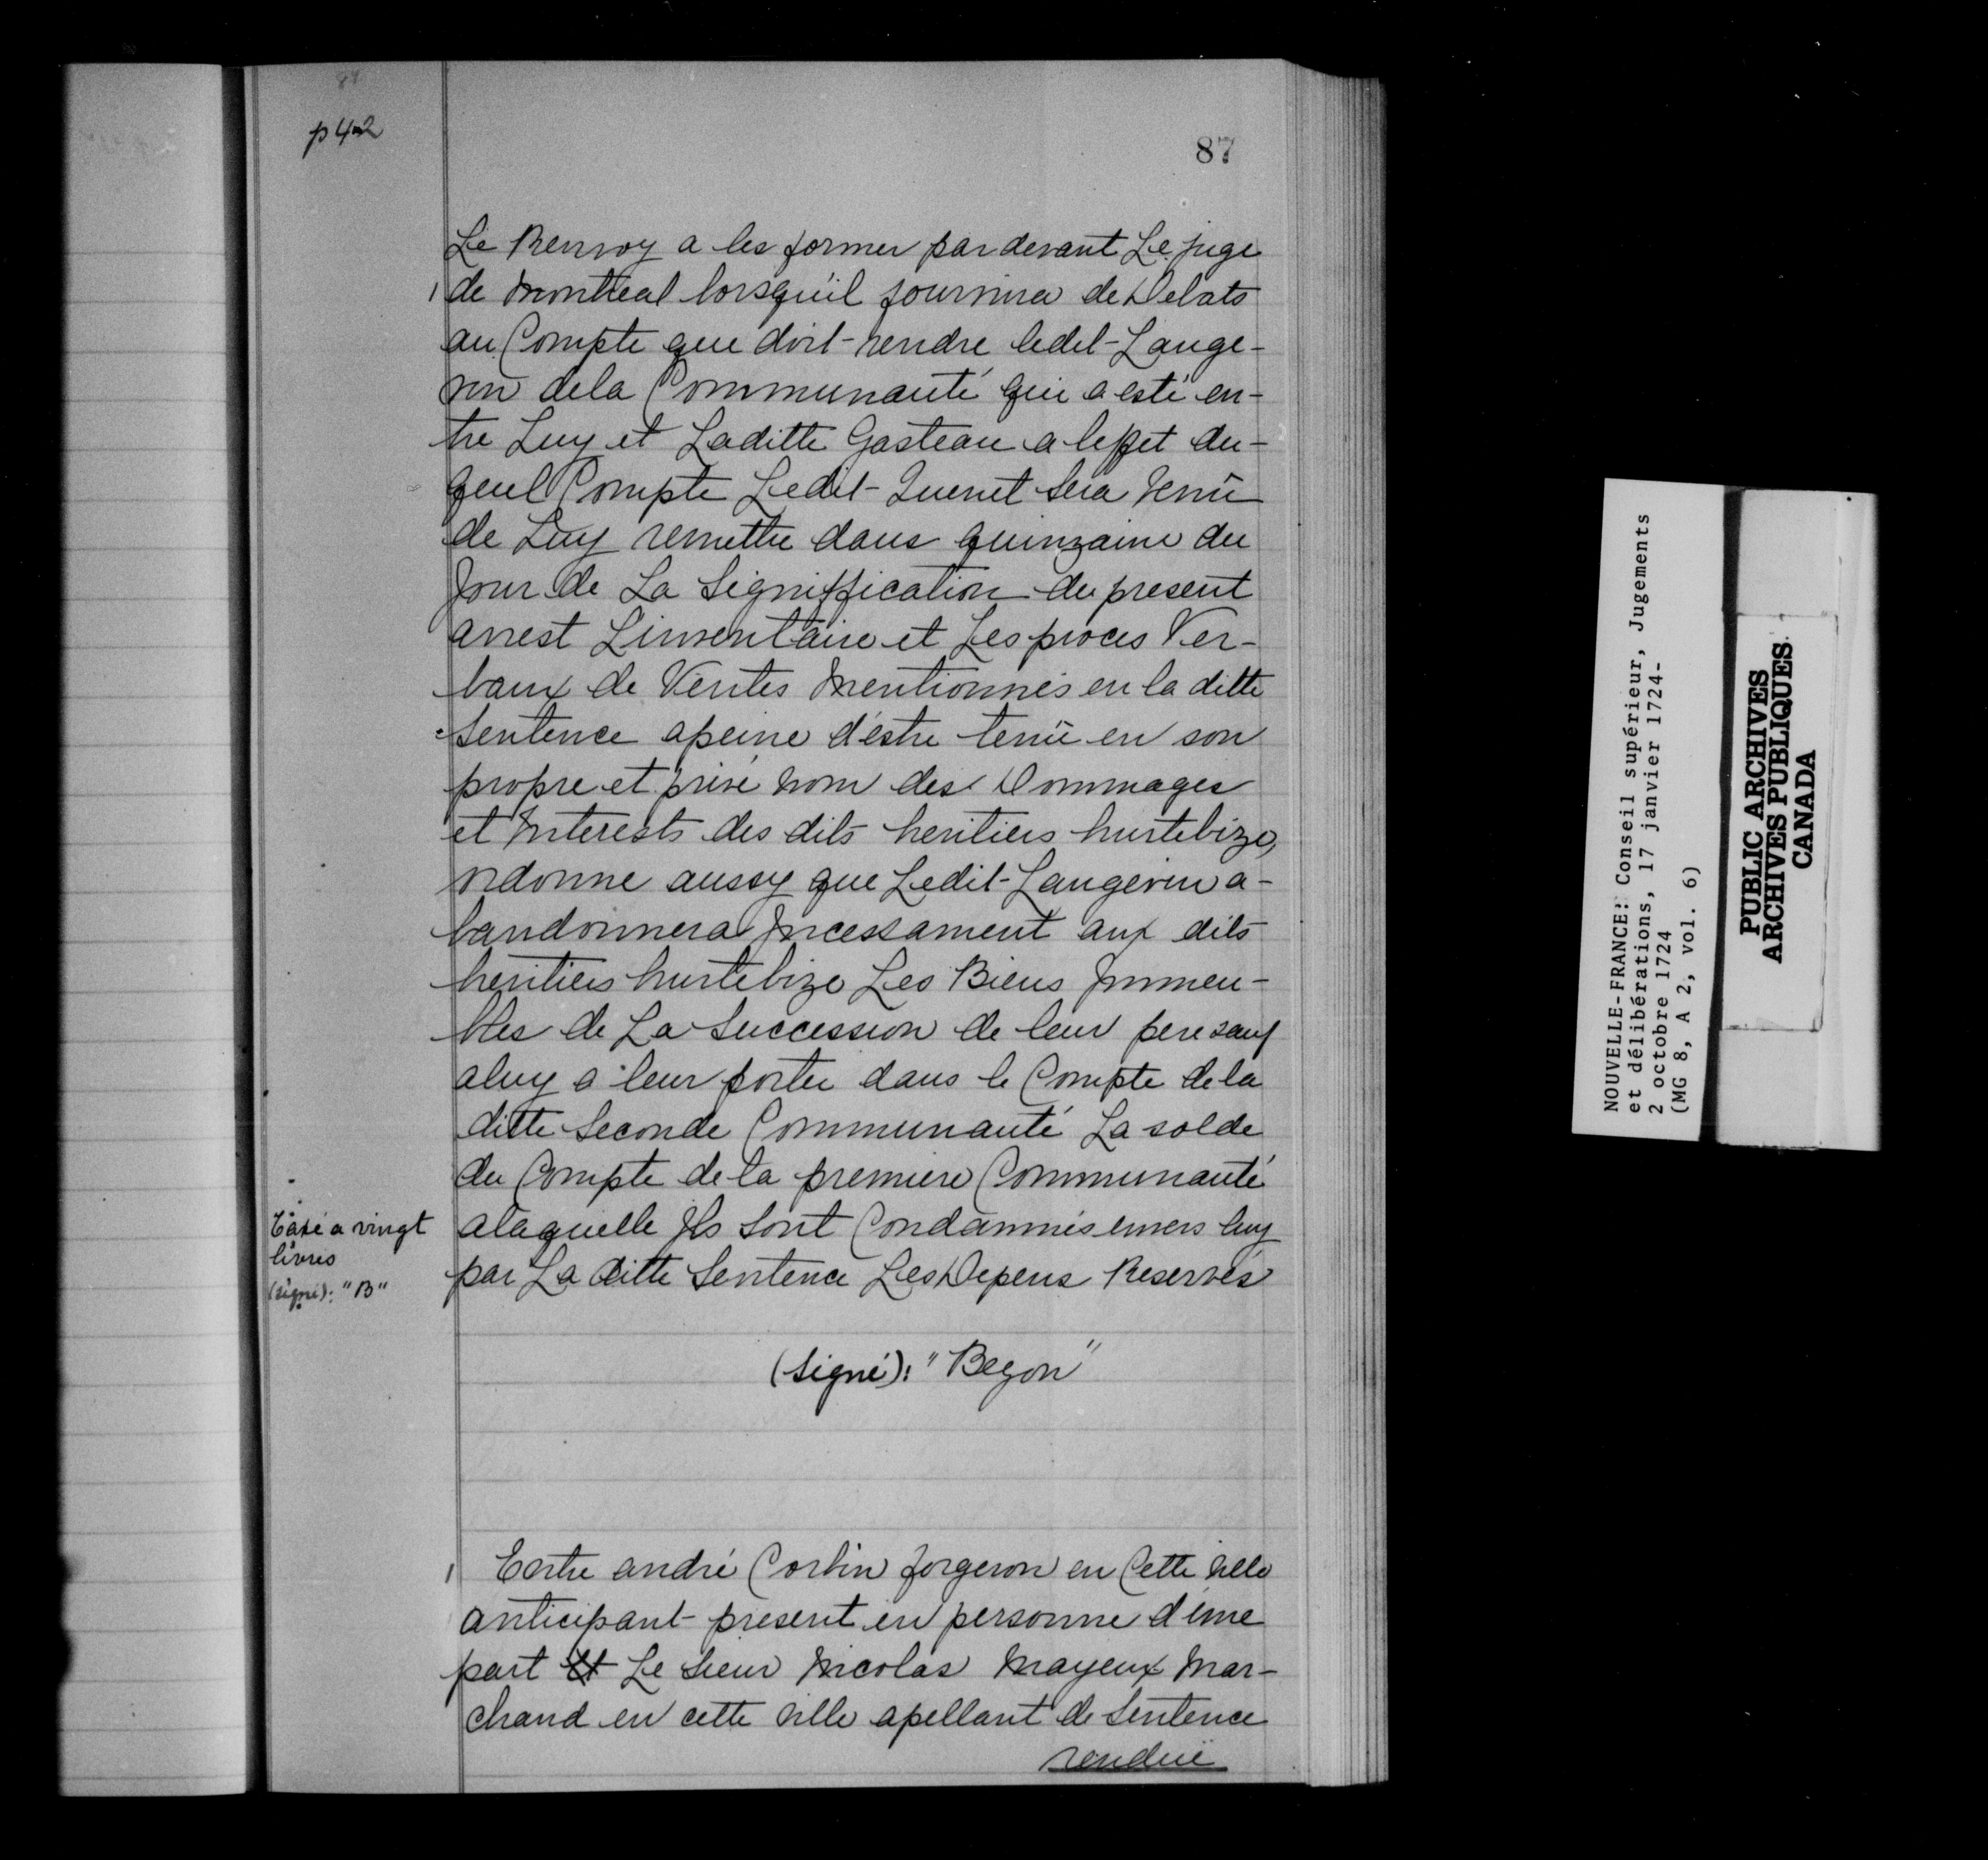 87
p 42
87
Le Renvoy a les former par devant Le juge
de Montreal lorsqu'il fournira de Debats
au Compte que doit rendre ledit Lange-
vin dela Communauté qui a esté en-
tre Luy et Laditte Gasteau a leffet du-
quel Compte Ledit Quenet Sera tenü
de Luy remettre dans quinzaine du
Jour de La Signiffication du present
arrest Linventaire et Les proces Ver-
baux de Ventes Mentionnés en la ditte
Sentence apeine d'estre tenü en son
propre et privé nom des Dommages
et Interests des dits heritiers hurtebize,
ordonne aussy que Ledit Langevin a-
bandonnera Incessament aux dits
heritiers hurtebize Les Biens Immeu-
bles de La Succession de leur pere sauf
aluy a leur porter dans le Compte de la
ditte Seconde Communauté La solde
du Compte de la premiere Communauté
alaquelle Ils Sont Condamnés envers luy
par La ditte Sentence Les Depens Reservés
Taxé a vingt
livres
(signé): "B"
(Signé): "Begon"
Entre andré Corbin forgeron en Cette ville
anticipant present en personne d'une
part Et Le Sieur Nicolas Mayeux Mar-
chand en cette ville apellant de Sentence
rendüe
NOUVELLE-FRANCE: Conseil supérieur, Jugements
et délibérations, 17 janvier 1724-
2 octobre 1724
(MG 8, A 2, vol. 6)
PUBLIC ARCHIVES
ARCHIVES PUBLIQUES
CANADA